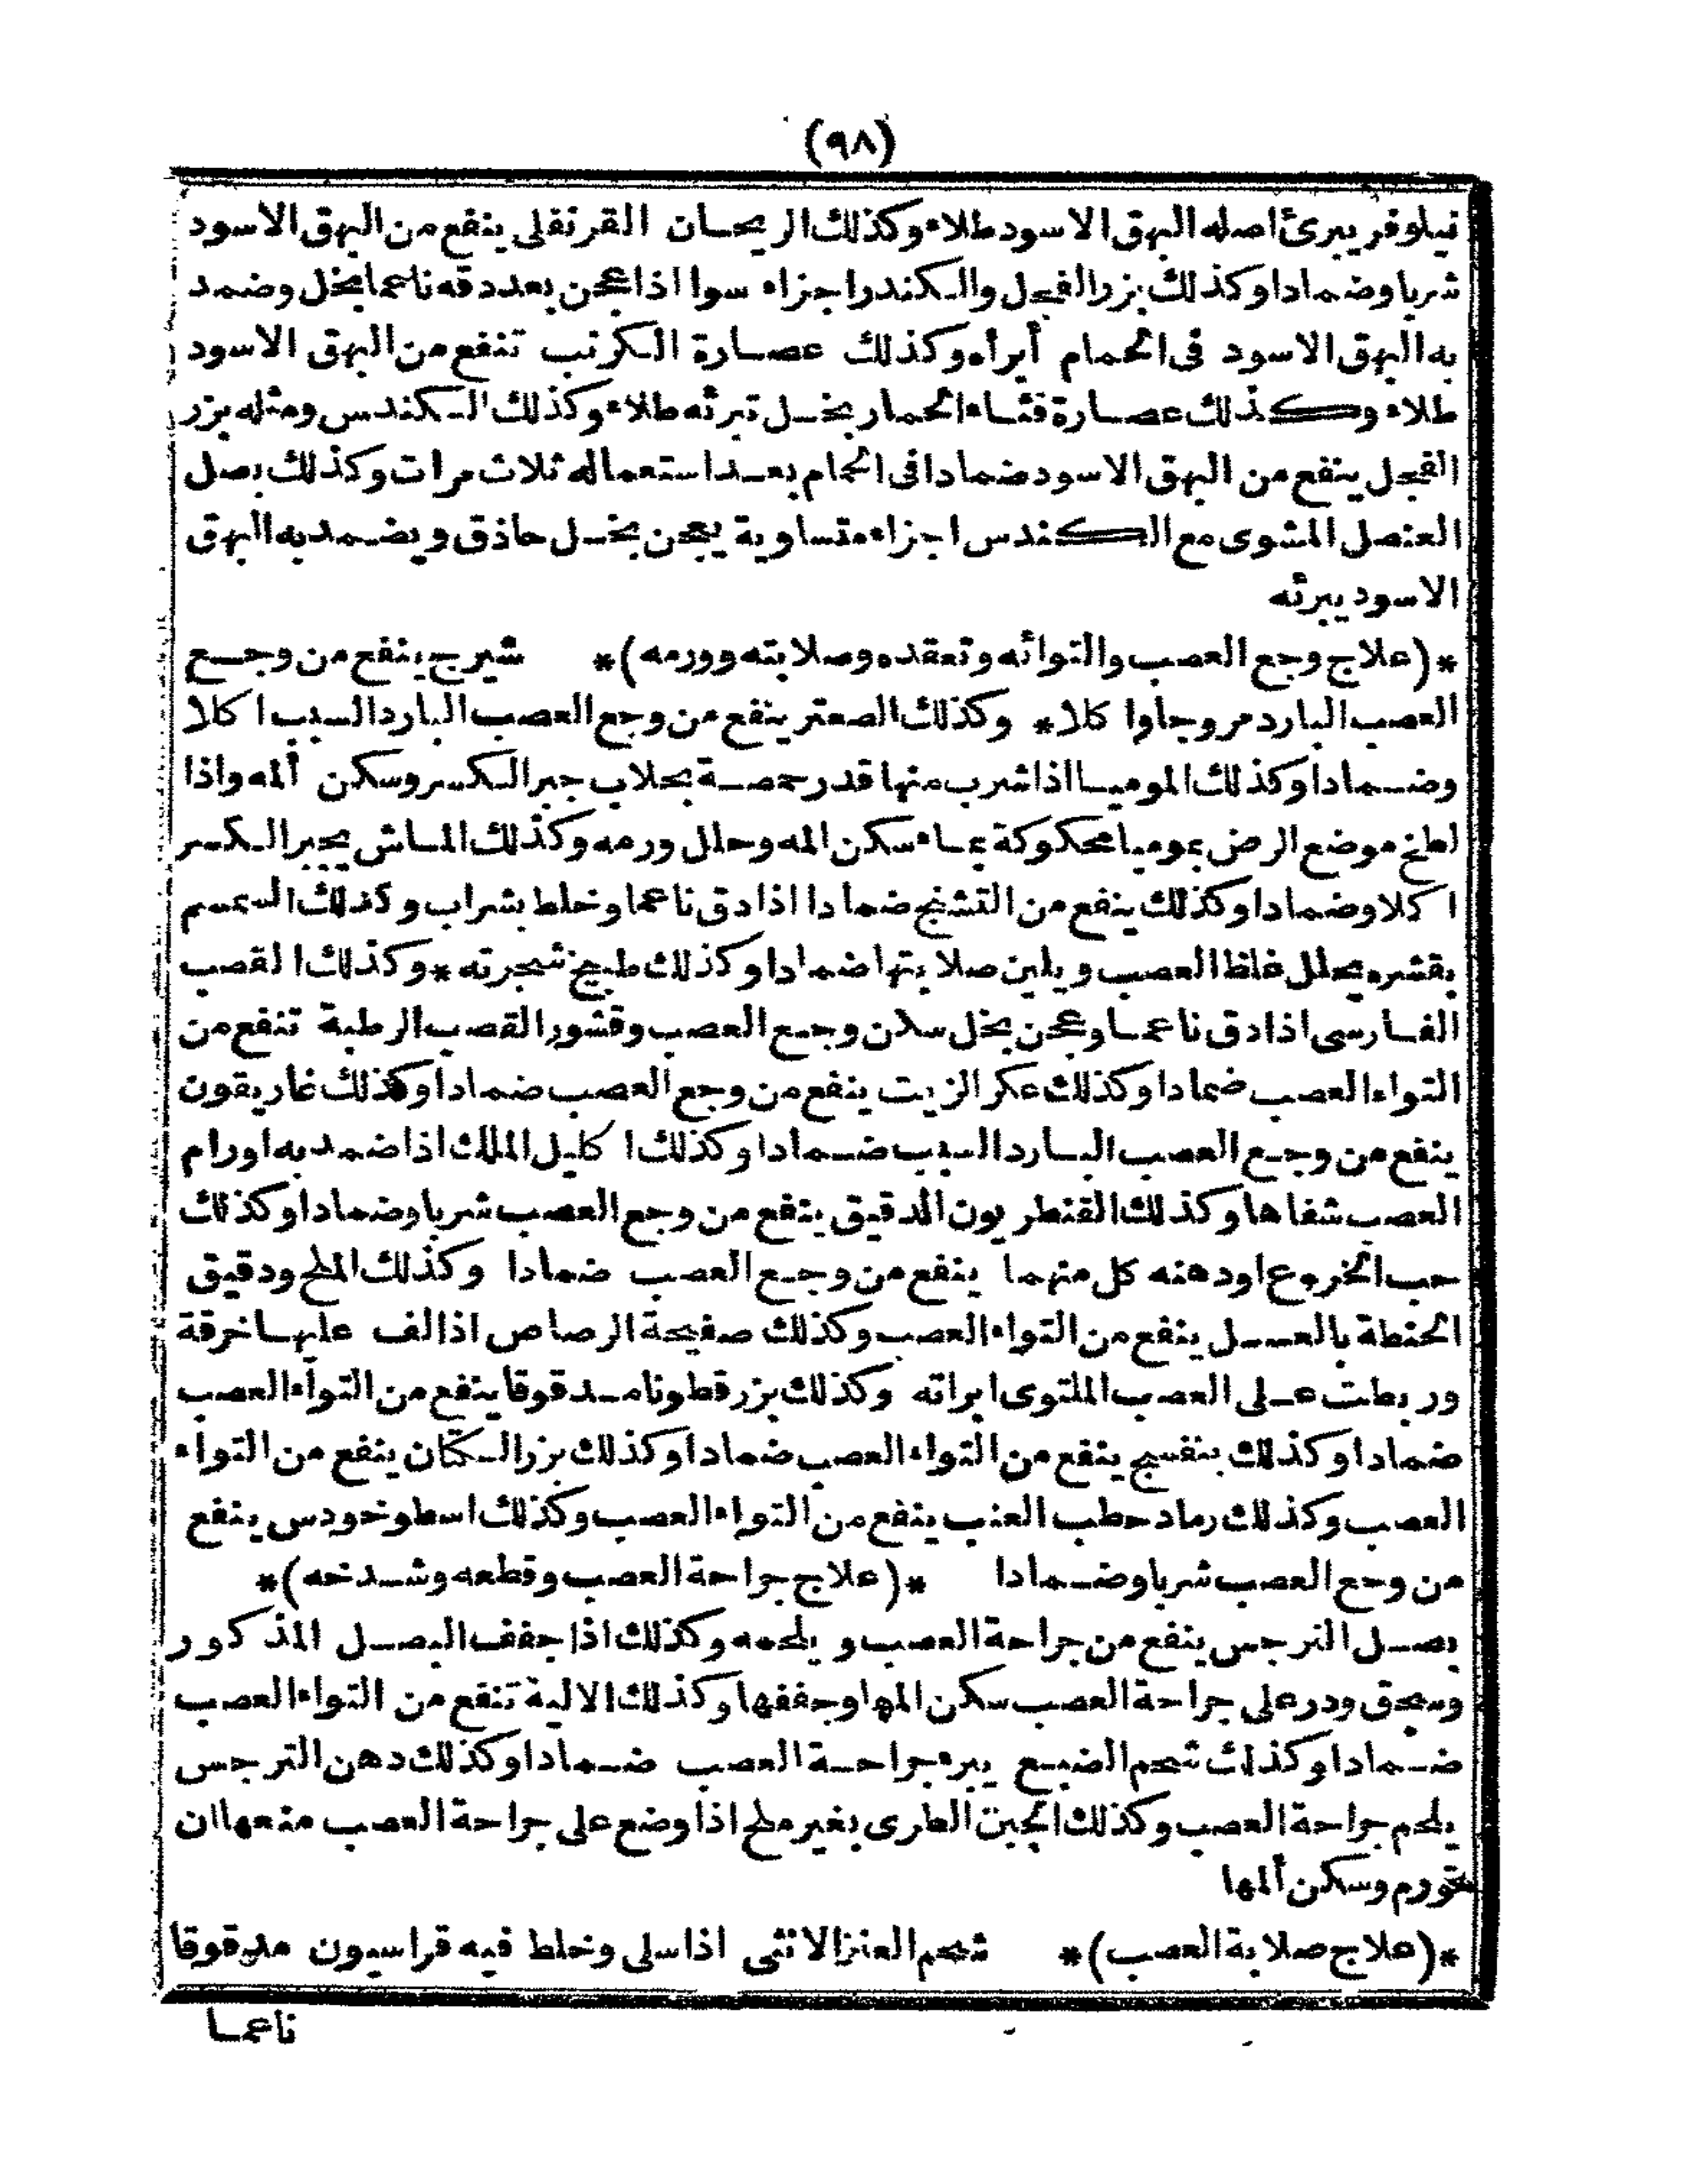 (٩٨)
نيلوفر يبرئ اصله البهق الاسود طلاء وكذلك الريحان القرنفلى ينفع من البهق الاسود
شربا وضمادا وكذلك بزر الفجل والكندر اجزاء سوا اذا عجن بعد دقه ناعما بخل وضمد
به البهق الاسود فى الحمام أبرأه وكذلك عصارة الكرنب تنفع من البهق الاسود
طلاء وكذلك عصارة قثاء الحمار بخل تبرئه طلاء وكذلك الكندس ومثله بزر
الفجل ينفع من البهق الاسود ضمادا فى الحمام بعد استعماله ثلاث مرات وكذلك بصل
العنصل المشوى مع الكندس اجزاء متساوية يعجن بخل حاذق ويضمد به البهق
الاسود يبرئه
*(علاج وجع العصب والتوائه وتعقده وصلابته وورمه)* شيرج ينفع من وجع
العصب البارد مروجا وا كلا* وكذلك الصعتر ينفع من وجع العصب البارد السبب اكلا
وضمادا وكذلك الموميا اذا شرب منها قدر حمصة بجلاب جبر الكسر وسكن ألمه واذا
لطخ موضع الرض بموميا محكوكة بماء سكن المه وحلل ورمه وكذلك الماش يجبر الكسر
اكلا وضمادا وكذلك ينفع من التشنج ضمادا اذا دق ناعما وخلط بشراب وكذلك السمسم
بقشره يحلل غلظ العصب ويلين صلابتها ضمادا وكذلك طبيخ شجرته *وكذلك القصب
الفارسى اذا دق ناعما وعجن بخل سكن وجع العصب وقشور القصب الرطبة تنفع من
التواء العصب ضمادا وكذلك عكر الزيت ينفع من وجع العصب ضمادا وكذلك غاريقون
ينفع من وجع العصب البارد السبب ضمادا وكذلك اكليل الملك اذا ضمد به اورام
العصب شفاها وكذلك القنطريون الدقيق ينفع من وجع العصب شربا وضمادا وكذلك
حب الخروع اودهنه كل منهما ينفع من وجع العصب ضمادا وكذلك الملح ودقيق
الحنطة بالعسل ينفع من التواء العصب وكذلك صفيحة الرصاص اذا لف عليها خرقة
وربطت على العصب الملتوى ابراته وكذلك بزر قطونا مدقوقا ينفع من التوآء العصب
ضمادا وكذلك بنفسج ينفع من التواء العصب ضمادا وكذلك بزر الكتان ينفع من التواء
العصب وكذلك رماد حطب العنب ينفع من التواء العصب وكذلك اسطوخودس ينفع
من وجع العصب شربا وضمادا *(علاج جراحة العصب وقطعه وشدخه)*
بصل النرجس ينفع من جراحة العصب ويلحمه وكذلك اذا جفف البصل المذكور
وسحق وذر على جراحة العصب سكن المها وجففها وكذلك الالية تنفع من التواء العصب
ضمادا وكذلك شحم الضبع يبرء جراحة العصب ضمادا وكذلك دهن النرجس
يلحم جراحة العصب وكذلك الجبن الطرى بغير ملح اذا وضع على جراحة العصب منعها ان
تتورم وسكن ألمها
*(علاج صلابة العصب)* شحم العنز الانثى اذا سلى وخلط فيه فراسيون مدقوقا
ناعما